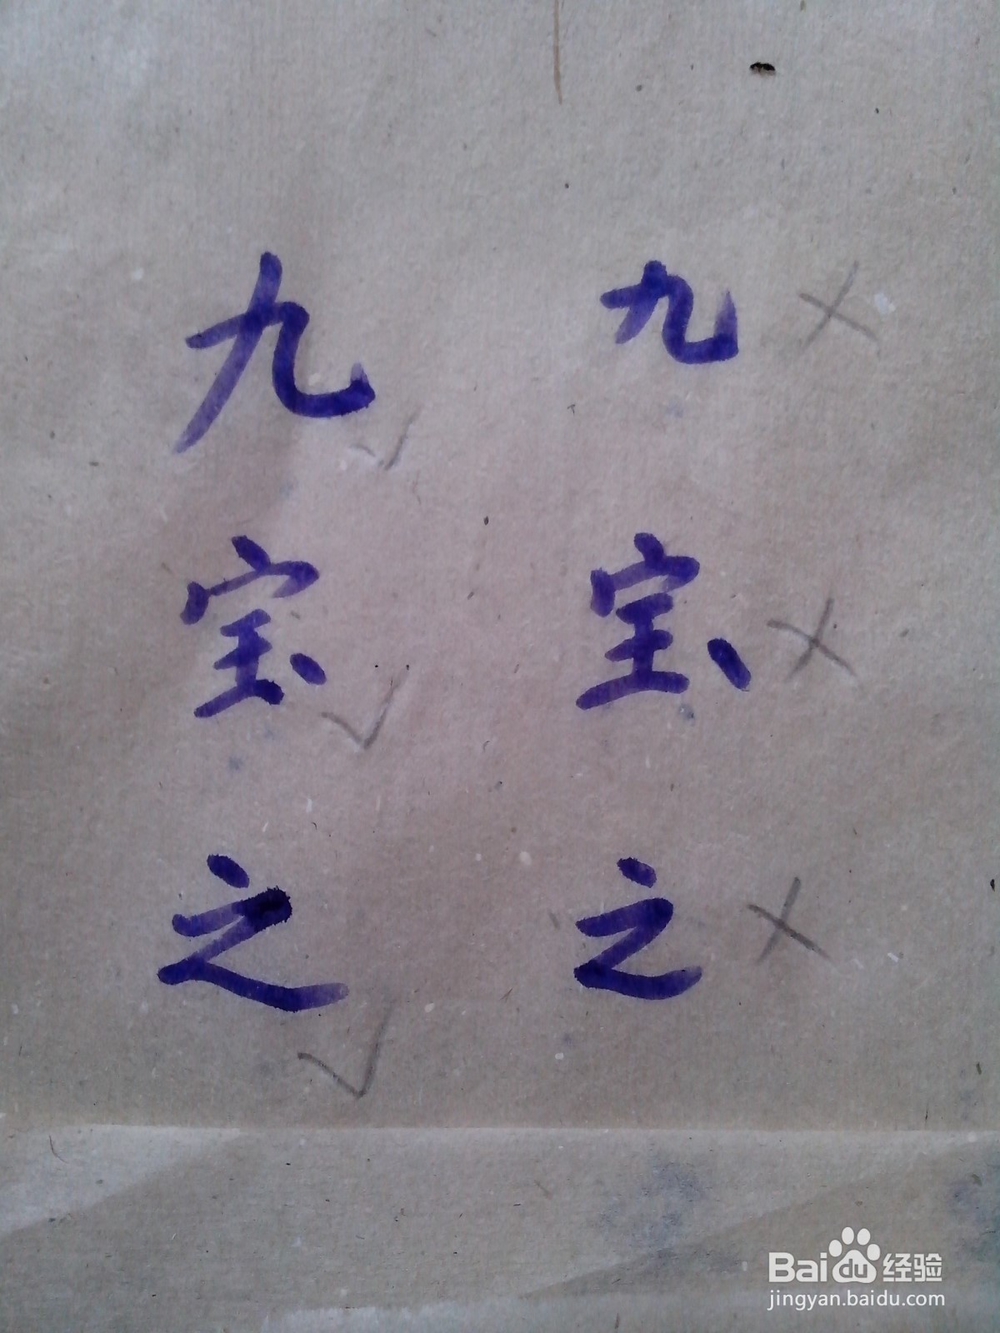 九 九 ×
宝 宝 ×
√
之 之 ×
√
Baidu 经验
jingyan.baidu.com